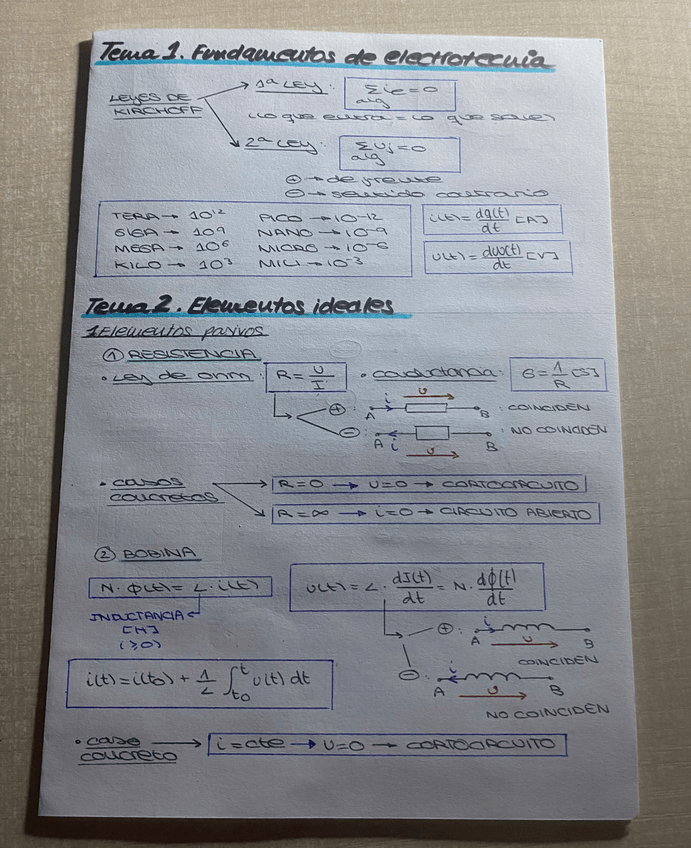 Tema 1. Fundamentos de electrotecnia
LEYES DE KIRCHOFF
1ª LEY: Σ ie = 0
alg
(lo que entra = lo que sale)
2ª LEY: Σ uj = 0
alg
⊕ → de frente
⊖ → sentido contrario
TERA → 10¹² PICO → 10⁻¹²
GIGA → 10⁹ NANO → 10⁻⁹
MEGA → 10⁶ MICRO → 10⁻⁶
KILO → 10³ MILI → 10⁻³
i(t) = dq(t)/dt [A]
u(t) = dw(t)/dt [V]
Tema 2. Elementos ideales
1. Elementos pasivos
① RESISTENCIA
• Ley de Ohm: R = U/I
• conductancia: G = 1/R [S]
⊕: A i u B : COINCIDEN
⊖: A i u B : NO COINCIDEN
• casos concretos
R = 0 → U = 0 → CORTOCIRCUITO
R = ∞ → i = 0 → CIRCUITO ABIERTO
② BOBINA
N · Φ(t) = L · i(t)
INDUCTANCIA
[H]
(≥0)
u(t) = L · dI(t)/dt = N · dϕ(t)/dt
⊕: A i u B
COINCIDEN
⊖: A i u B
NO COINCIDEN
i(t) = i(t₀) + 1/L ∫t₀^t u(t) dt
• caso concreto
i = cte → U = 0 → CORTOCIRCUITO